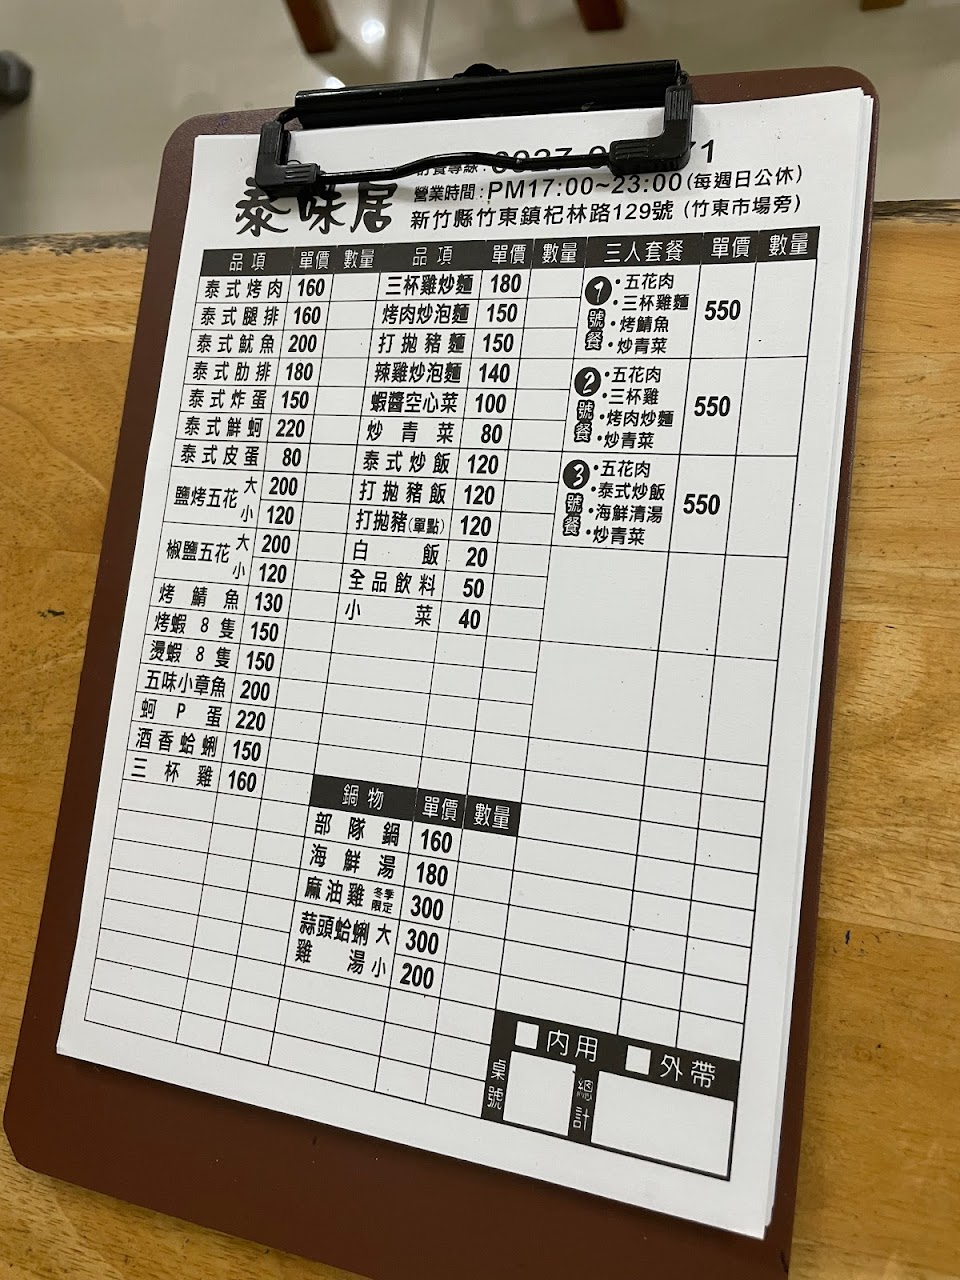 訂餐專線:
泰味居
營業時間:PM17:00~23:00(每週日公休)
新竹縣竹東鎮杞林路129號 (竹東市場旁)
品項 單價 數量
泰式烤肉 160
泰式腿排 160
泰式魷魚 200
泰式肋排 180
泰式炸蛋 150
泰式鮮蚵 220
泰式皮蛋 80
鹽烤五花 大 200
小 120
椒鹽五花 大 200
小 120
烤鯖魚 130
烤蝦8隻 150
燙蝦8隻 150
五味小章魚 200
蚵P蛋 220
酒香蛤蜊 150
三杯雞 160
品項 單價 數量
三杯雞炒麵 180
烤肉炒泡麵 150
打拋豬麵 150
辣雞炒泡麵 140
蝦醬空心菜 100
炒青菜 80
泰式炒飯 120
打拋豬飯 120
打拋豬(單點) 120
白飯 20
全品飲料 50
小菜 40
鍋物 單價 數量
部隊鍋 160
海鮮湯 180
麻油雞 冬季限定 300
蒜頭蛤蜊雞湯 大 300
小 200
三人套餐 單價 數量
1號餐 550
·五花肉
·三杯雞麵
·烤鯖魚
·炒青菜
2號餐 550
·五花肉
·三杯雞
·烤肉炒麵
·炒青菜
3號餐 550
·五花肉
·泰式炒飯
·海鮮清湯
·炒青菜
內用 外帶
桌號 總計